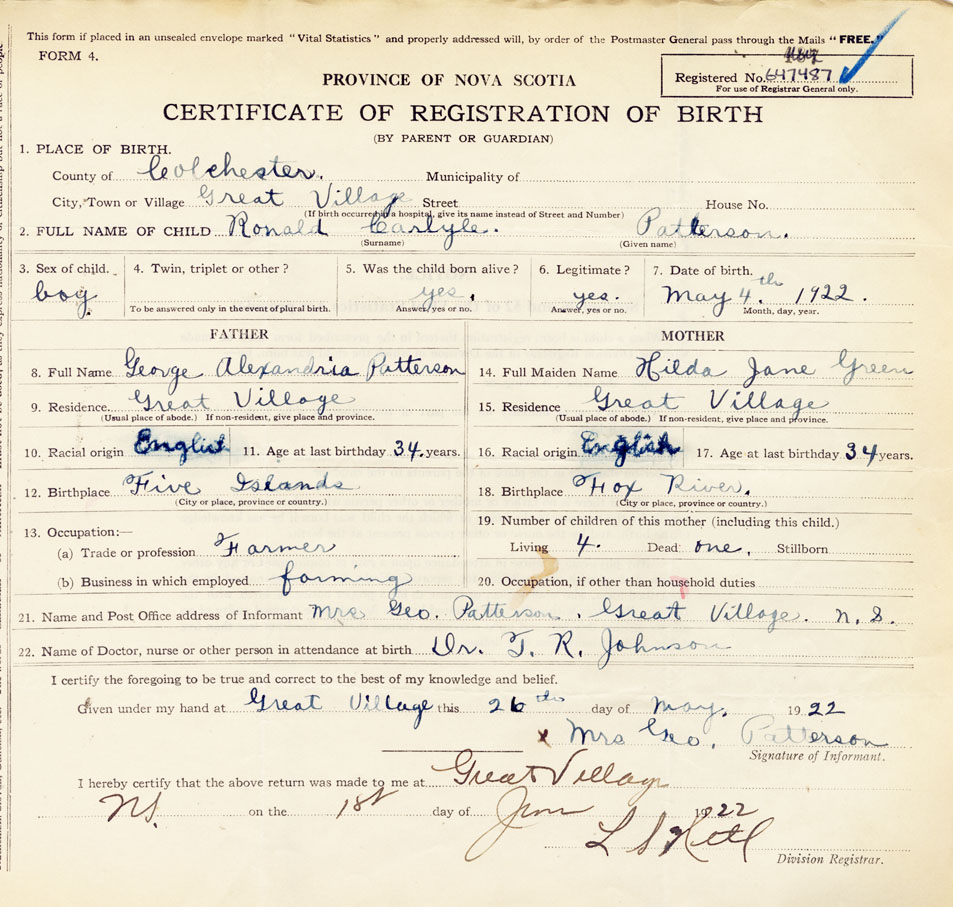 This form if placed in an unsealed envelope marked "Vital Statistics" and properly addressed will, by order of the Postmaster General pass through the Mails "FREE."
FORM 4.
PROVINCE OF NOVA SCOTIA
Registered No. 647487
For use of Registrar General only.
CERTIFICATE OF REGISTRATION OF BIRTH
(BY PARENT OR GUARDIAN)
1. PLACE OF BIRTH.
County of Colchester. Municipality of
City, Town or Village Great Village Street House No.
(If birth occurred in a hospital, give its name instead of Street and Number)
2. FULL NAME OF CHILD Ronald Carlyle. Patterson.
(Surname) (Given name)
3. Sex of child. 4. Twin, triplet or other? 5. Was the child born alive? 6. Legitimate? 7. Date of birth.
boy. yes. yes. May 4th. 1922.
To be answered only in the event of plural birth. Answer, yes or no. Answer, yes or no. Month, day, year.
FATHER MOTHER
8. Full Name George Alexandria Patterson 14. Full Maiden Name Hilda Jane Green
9. Residence. Great Village 15. Residence Great Village
(Usual place of abode.) If non-resident, give place and province. (Usual place of abode.) If non-resident, give place and province.
10. Racial origin English 11. Age at last birthday 34. years. 16. Racial origin English 17. Age at last birthday 34 years.
12. Birthplace Five Islands 18. Birthplace Fox River.
(City or place, province or country.) (City or place, province or country.)
13. Occupation:— 19. Number of children of this mother (including this child.)
(a) Trade or profession Farmer Living 4. Dead one. Stillborn
(b) Business in which employed farming 20. Occupation, if other than household duties
21. Name and Post Office address of Informant Mrs Geo. Patterson. Great Village. N. S.
22. Name of Doctor, nurse or other person in attendance at birth Dr. T. R. Johnson
I certify the foregoing to be true and correct to the best of my knowledge and belief.
Given under my hand at Great Village this 26th day of May. 1922
x Mrs Geo. Patterson
Signature of Informant.
I hereby certify that the above return was made to me at Great Village
NS. on the 1st day of 1922
L S
Division Registrar.